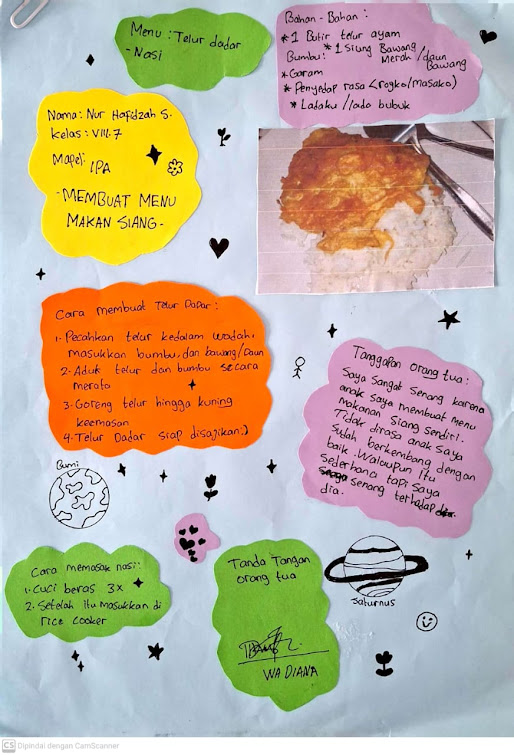 Menu : Telur dadar
- Nasi
Bahan - Bahan :
* 1 Butir telur ayam
Bumbu: * 1 Siung Bawang
Merah /daun
Bawang
* Garam
* Penyedap rasa < rogko/masako)
* Ladaku //ada bubuk
Nama : Nur Hafidzah S.
Kelas : VIII.7
Mapel: IPA
- MEMBUAT MENU
MAKAN SIANG -
Cara membuat Telur Dadar :
1. Pecahkan telur kedalam wadah,
masukkan bumbu, dan bawang/Daun
2. Aduk telur dan bumbu secara
merata
3. Goreng telur hingga kuning
keemasan
4. Telur Dadar siap disajikan:)
Tanggapan orang tua :
Saya sangat senang karena
anak saya membuat menu
makanan siang sendiri.
Tidak dirasa anak saya
Sudah berkembang dengan
baik. Walaupun itu
sederhana tapi saya
senang terhadap
dia.
Bumi
Cara memasak nasi :
1. Cuci beras 3x
2. Setelah itu masukkan di
rice cooker
Tanda Tangan
orang tua
WA DIANA
Saturnus
CS Dipindai dengan CamScanner